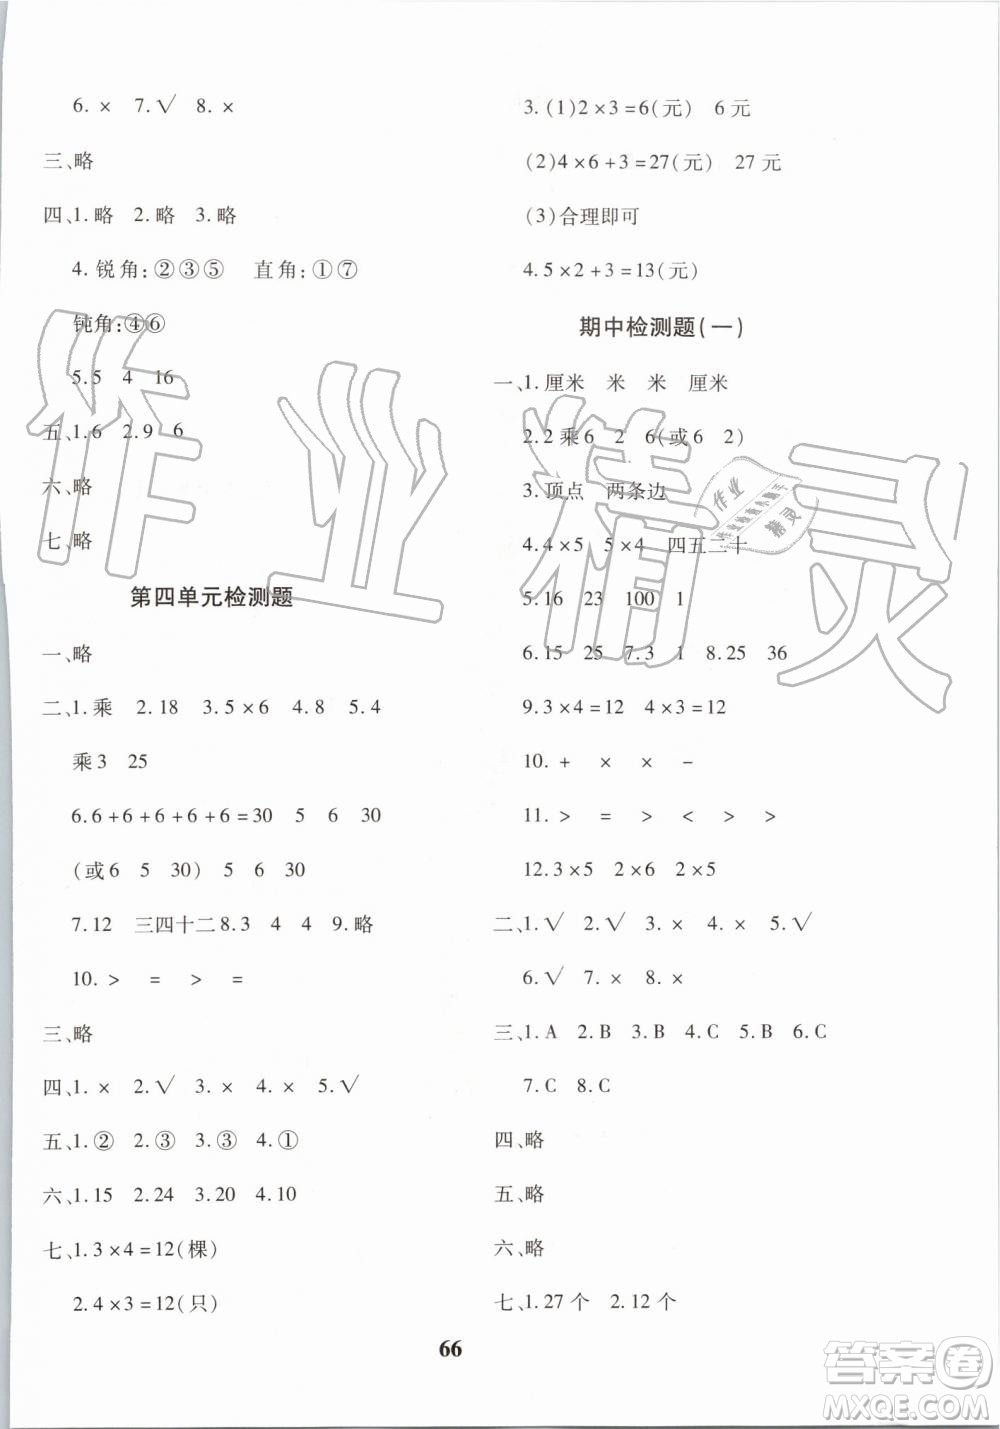 6. × 7.√ 8. ×
三、略
四、1.略 2.略 3.略
4.锐角:②③⑤ 直角:①⑦
钝角:④⑥
5.5 4 16
五、1.6 2.9 6
六、略
七、略
第四单元检测题
一、略
二、1.乘 2.18 3.5×6 4.8 5.4
乘3 25
6.6+6+6+6+6=30 5 6 30
(或6 5 30) 5 6 30
7.12 三四十二 8.3 4 4 9.略
10. > = > =
三、略
四、1. × 2.√ 3. × 4. × 5.√
五、1.② 2.③ 3.③ 4.①
六、1.15 2.24 3.20 4.10
七、1.3×4=12(棵)
2.4×3=12(只)
3.(1)2×3=6(元) 6元
(2)4×6+3=27(元) 27元
(3)合理即可
4.5×2+3=13(元)
期中检测题(一)
一、1.厘米 米 米 厘米
2.2乘6 2 6(或6 2)
3.顶点 两条边
4.4×5 5×4 四五二十
5.16 23 100 1
6.15 25 7.3 1 8.25 36
9.3×4=12 4×3=12
10. + × × -
11. > = > < > >
12.3×5 3×4 2×5
二、1.√ 2.√ 3. × 4. × 5.√
6.√ 7. × 8. ×
三、1.A 2.B 3.B 4.C 5.B 6.C
7.C 8.C
四、略
五、略
六、略
七、1.27个 2.12个
66
作业精灵
作业
精灵
答案卷
MXQE.COM